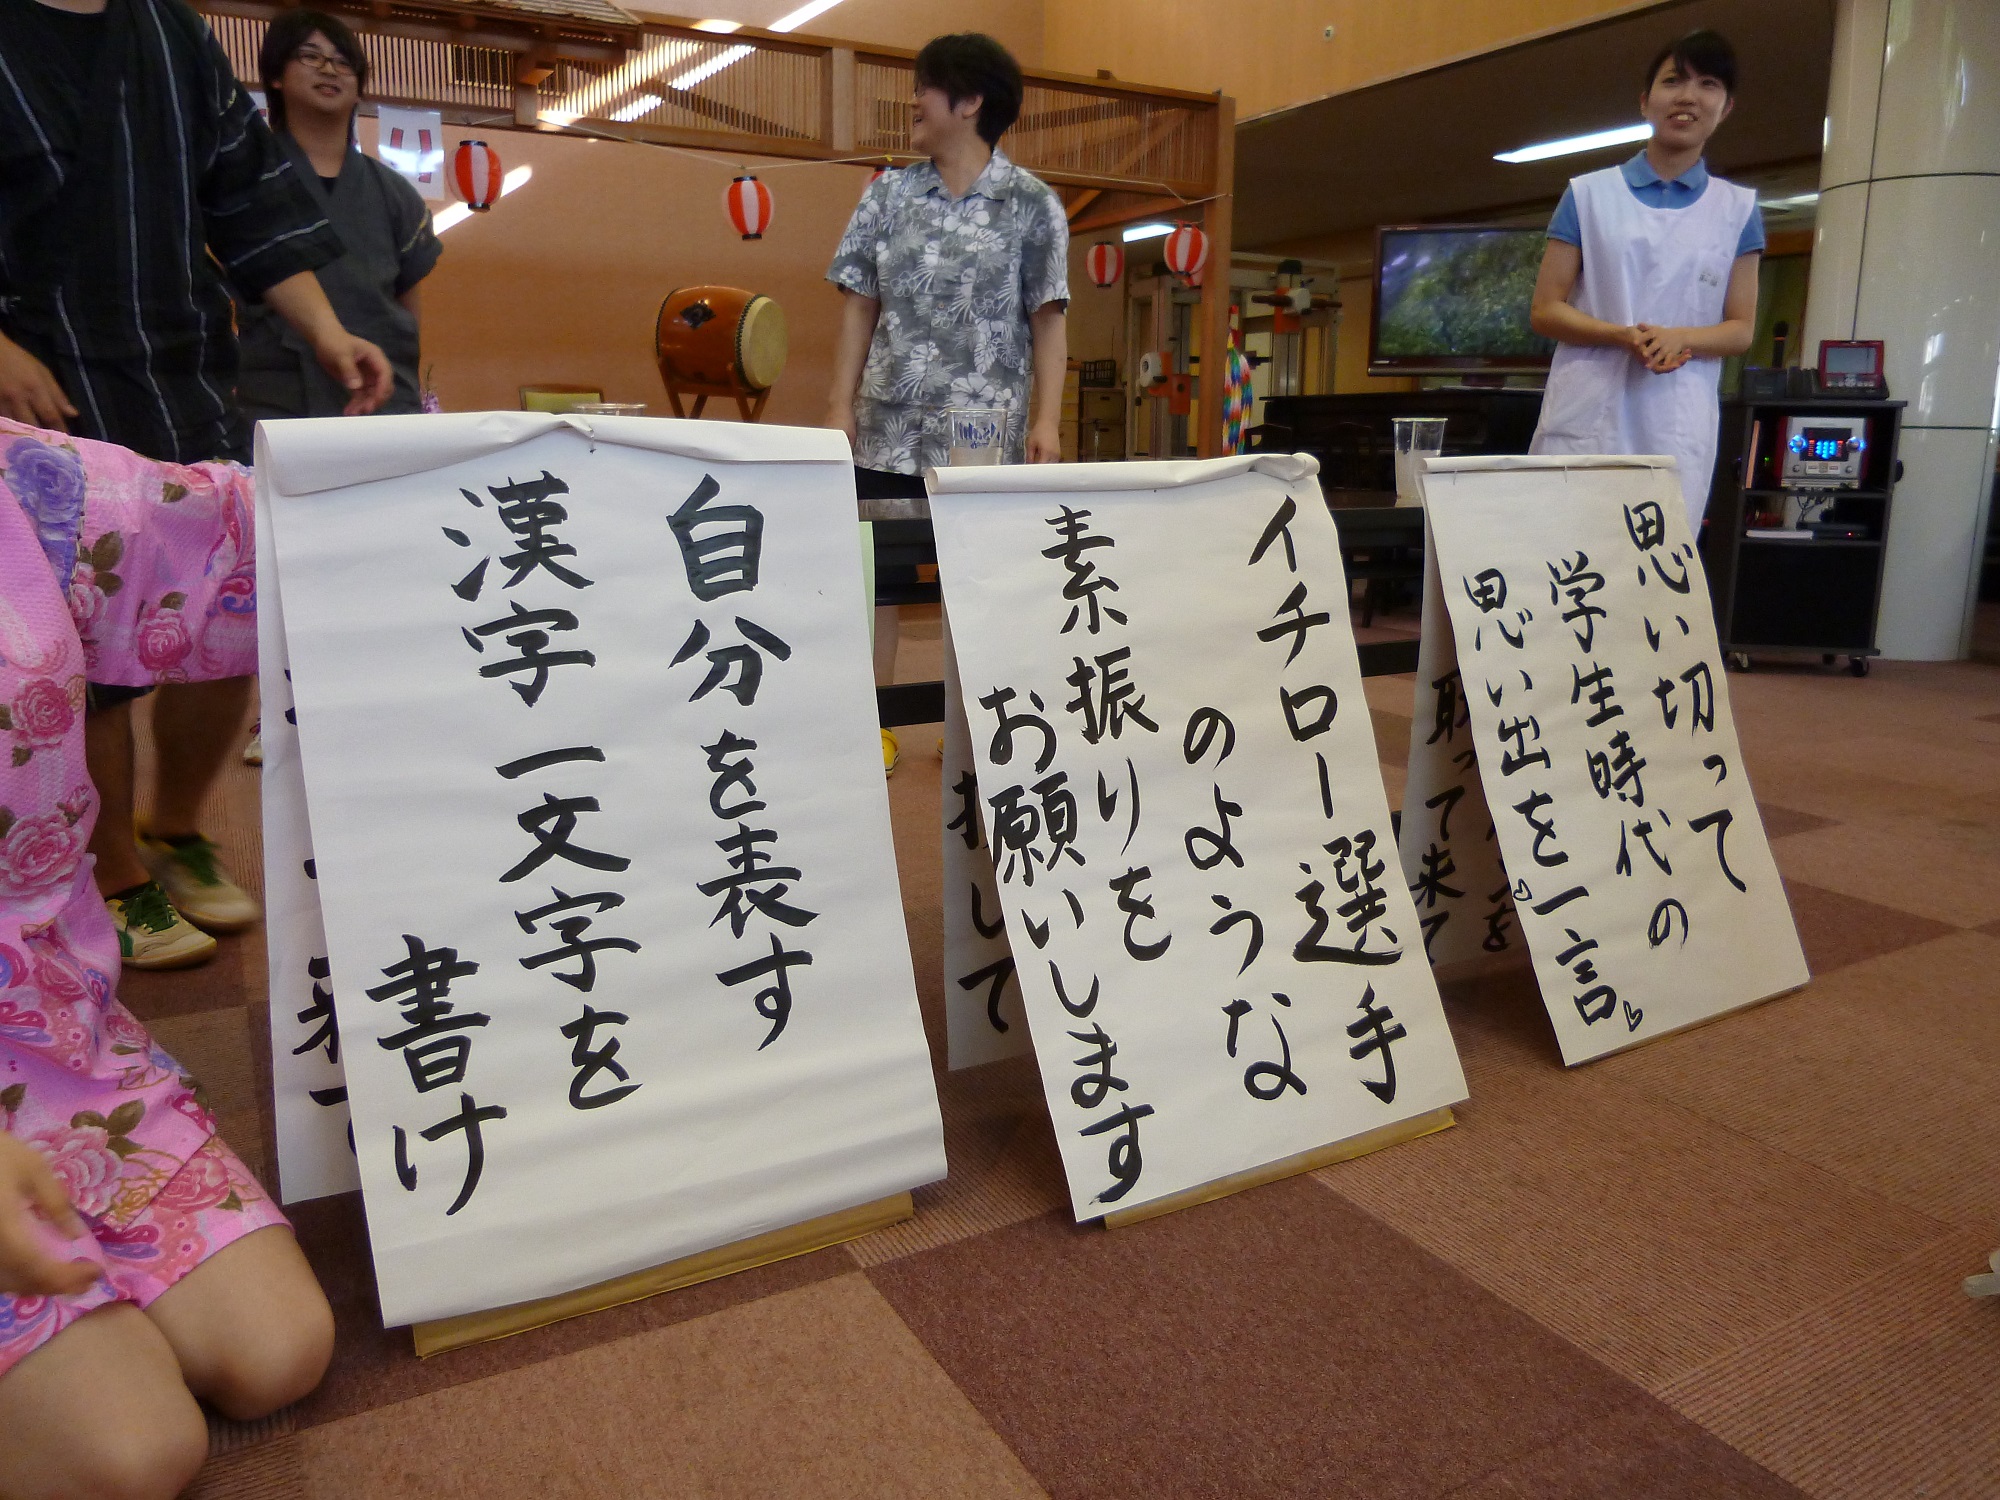 自分を表す
漢字一文字を
書け
イチロー選手
のような
素振りを
お願いします
思い切って
学生時代の
思い出を一言
取って来て